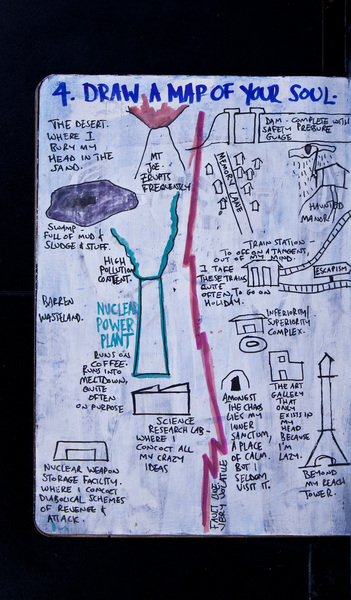 4. DRAW A MAP OF YOUR SOUL.
THE DESERT.
WHERE I
BURY MY
HEAD IN THE
SAND.
MT
JOE.
ERUPTS
FREQUENTLY
DAM - COMPLETE WITH
SAFETY PRESSURE
GUAGE.
MEMORY LANE
HAUNTED
MANOR
SWAMP -
FULL OF MUD &
SLUDGE & STUFF.
TRAIN STATION -
TO OFF ON A TANGENT,
OUT OF MY MIND.
I TAKE
THESE TRAINS
QUITE
OFTEN, TO GO ON
HOLIDAY.
ESCAPISM
HIGH
POLLUTION
CONTENT.
BARREN
WASTELAND.
NUCLEAR
POWER
PLANT
RUNS ON
COFFEE.
RUNS INTO
MELTDOWN,
QUITE
OFTEN
ON PURPOSE
INFERIORITY/
SUPERIORITY
COMPLEX.
THE ART
GALLERY
THAT
ONLY
EXISTS IN
MY
HEAD
BECAUSE
I'M
LAZY.
AMONGST
THE CHAOS
LIES MY
INNER
SANCTUM,
A PLACE
OF CALM.
BUT I
SELDOM
VISIT IT.
SCIENCE
RESEARCH LAB -
WHERE I
CONCOCT ALL
MY CRAZY
IDEAS
NUCLEAR WEAPON
STORAGE FACILITY.
WHERE I CONCOCT
DIABOLICAL SCHEMES
OF REVENGE &
ATTACK.
FAULT LINE
VERY VOLATILE
BEYOND
MY REACH
TOWER.